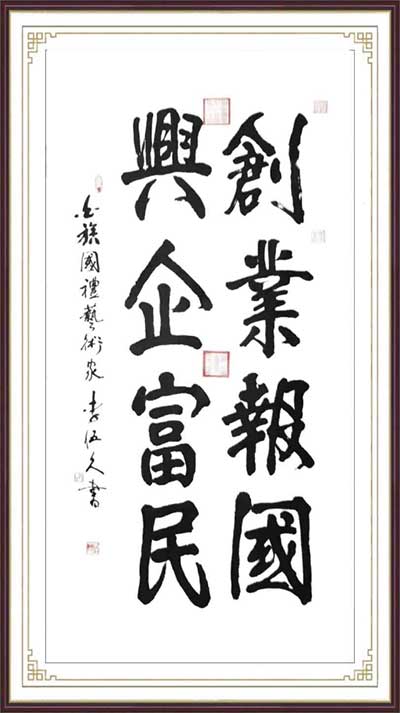 創業報國
興企富民
白族國禮藝術家李伍久書